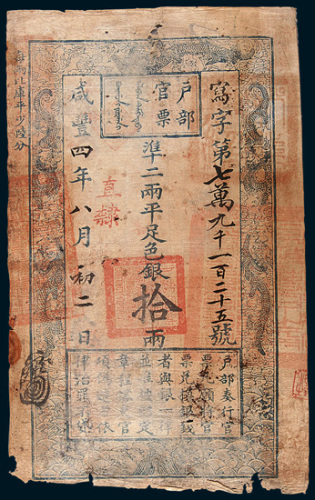 寫字第七萬九千一百二十五號
戶部
官票
準二兩平足色銀拾兩
直隸
咸豐四年八月初二日
每兩比庫平少陸分
戶部奏行官
票凡願將官
票兌換銀錢
者與銀一律
並准按部定
章程搭交官
項偽造者依
律治罪不貸